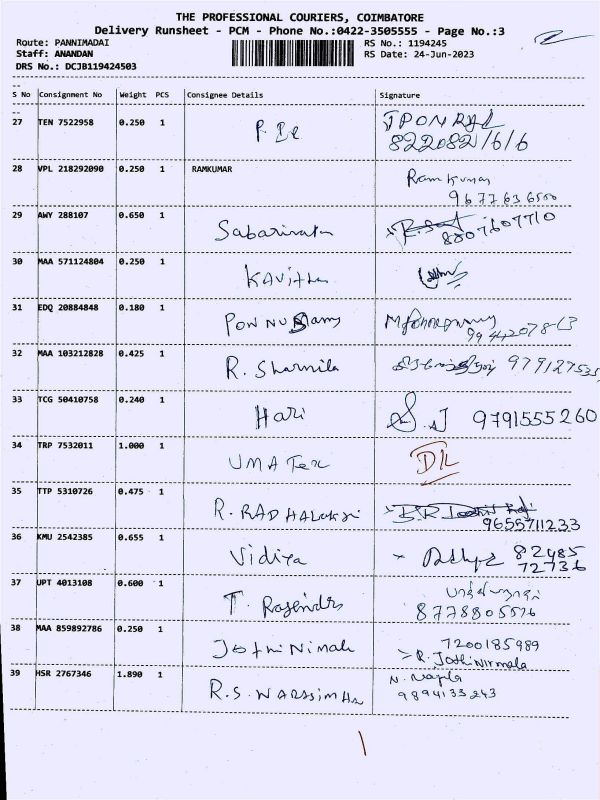 THE PROFESSIONAL COURIERS, COIMBATORE
Delivery Runsheet - PCM - Phone No.:0422-3505555 - Page No.:3
Route: PANNIMADAI
RS No.: 1194245
Staff: ANANDAN
RS Date: 24-Jun-2023
DRS No.: DCJB119424503
S No Consignment No Weight PCS Consignee Details Signature
27 TEN 7522958 0.250 1 JPONRAJ
822082/6/6
28 VPL 218292090 0.250 1 RAMKUMAR Ramkumar
9677636500
29 AWY 288107 0.650 1 Sabarinatn
8807607710
30 MAA 571124804 0.250 1 KAvitha
31 EDQ 20884848 0.180 1 PONNUSamy
32 MAA 103212828 0.425 1 R. Sharmila
33 TCG 50410758 0.240 1 Hari 9791555260
34 TRP 7532011 1.000 1 UMA Tex DL
35 TTP 5310726 0.475 1 R. RADHALakshi
9655711233
36 KMU 2542385 0.655 1 Vidiya 82485
72736
37 UPT 4013108 0.600 1 T. Rajendr
8778805576
38 MAA 859892786 0.250 1 Jothi Nimala 7200185989
R. Jothi Nirmala
39 HSR 2767346 1.890 1 R.S. NARASIMHA
9894133243